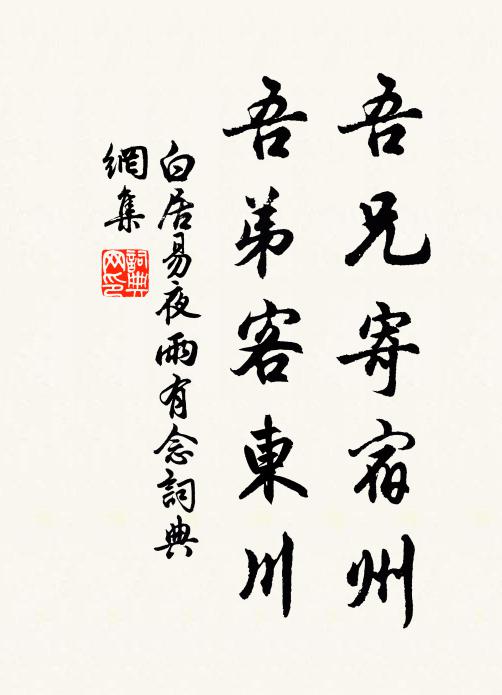 吾兄寄宿州
吾弟客東川
白居易夜雨有念詞典
網集
詞典
网印